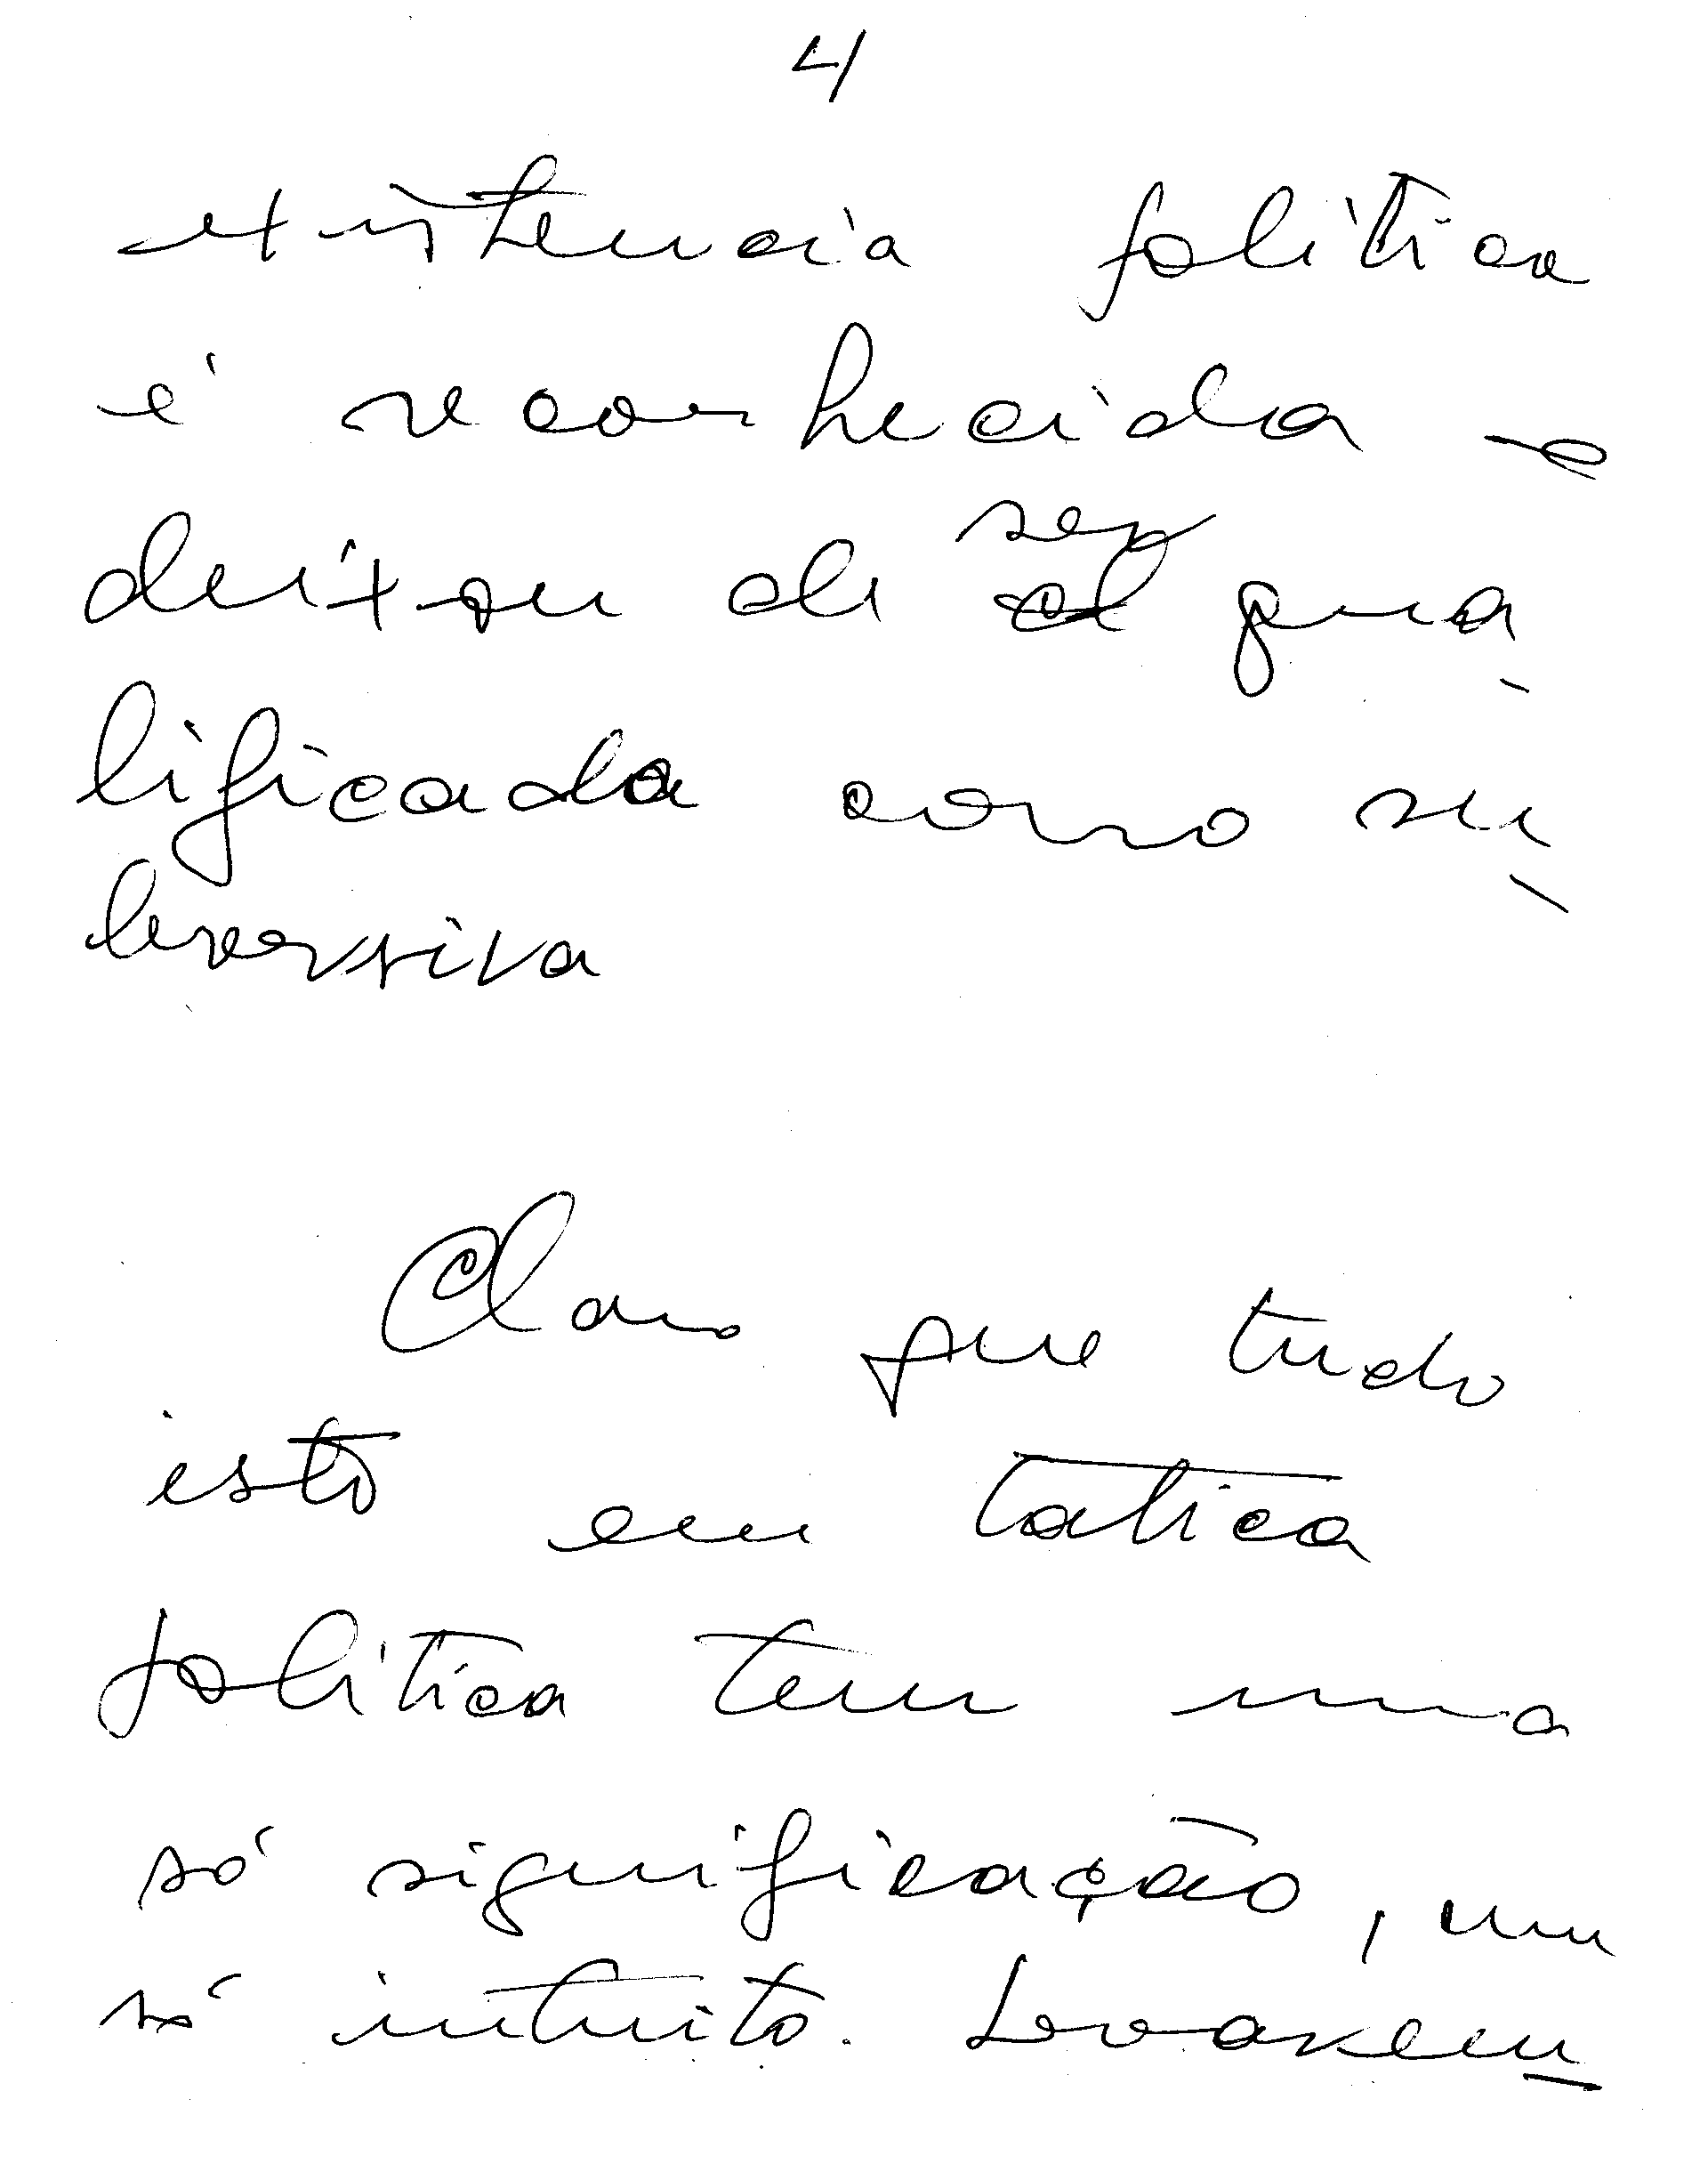 4
existencia politica
é reconhecida e
deixou de ser qua-
lificada como su-
bversiva
Claro que tudo
isto em tatica
politica tem uma
só significação, um
só intuito.